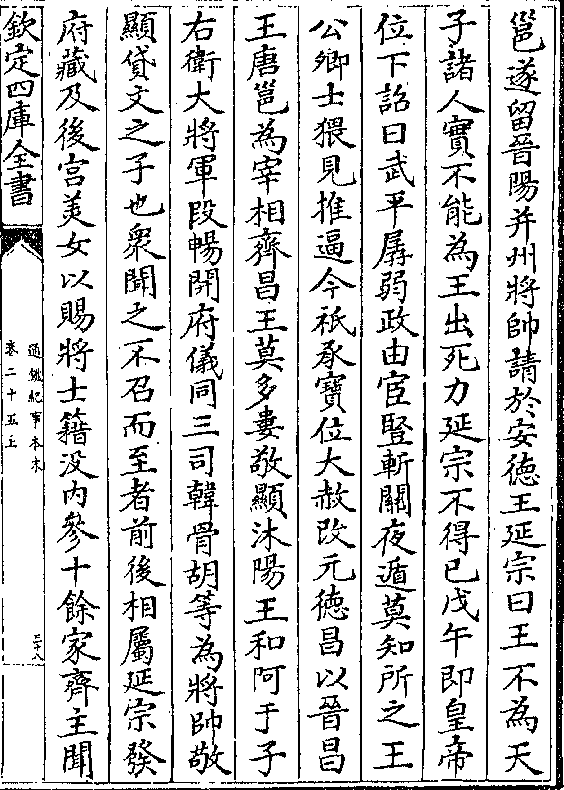 邕遂留晉陽并州將帥請於安徳王延宗曰王不為天
子諸人實不能為王出死力延宗不得已戊午即皇帝
位下詔曰武平孱弱政由宦豎斬關夜遁莫知所之王
公卿士猥見推逼今祇承寶位大赦改元徳昌以晉昌
王唐邕為宰相齊昌王莫多婁敬顯沐陽王和阿于子
右衛大將軍段暢開府儀同三司韓骨胡等為將帥敬
顯貸文之子也衆聞之不召而至者前後相屬延宗發
府藏及後宫美女以賜將士籍没内參十餘家齊主聞
欽定四庫全書
通鑑紀事本末
卷二十五上
二十八